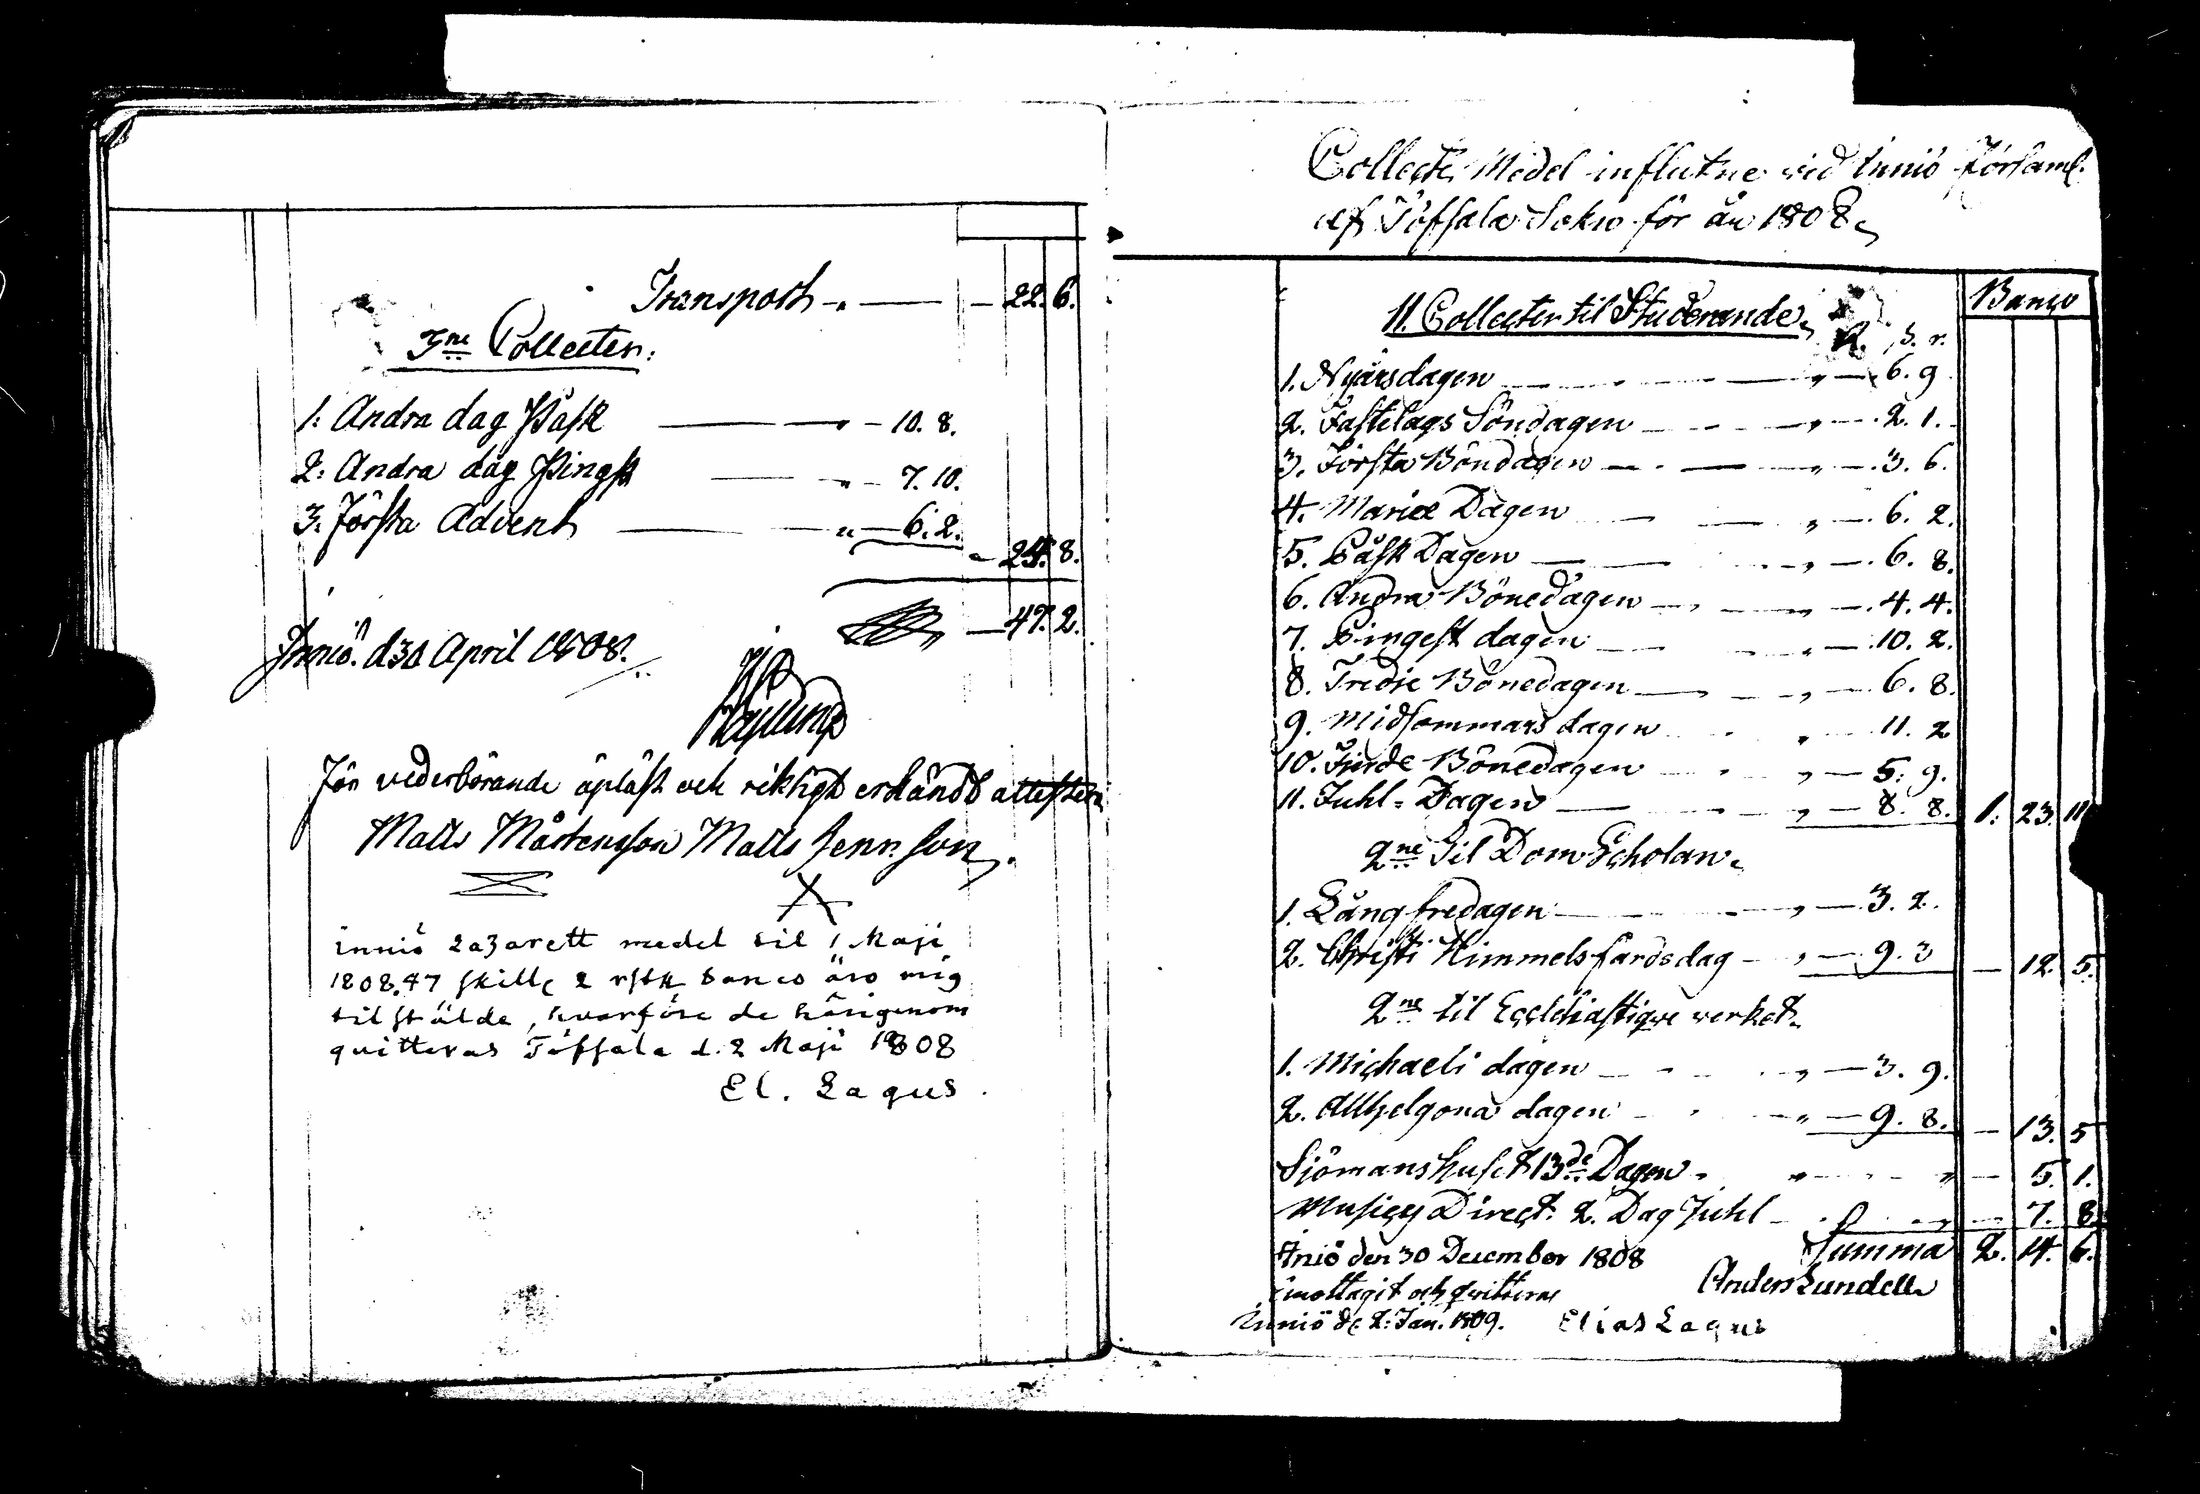 Transport - 22. 6.
3ne Collecter.
1. Andra dag Påsk - 10. 8.
2. Andra dag Pingst - 7. 10.
3. Första Advent - 6. 2.
- 24. 8.
- 47. 2.
Inniö. d 30 April 1808.
För vederbörande upläst och riktigt erkändt attestera
Matts Mårtensson Matts Jenns Son
Inniö Lazarett medel til 1 Maji
1808. 47 skill. 2 rst. banco äro mig
tilstälde, hvarföre de härigenom
quitteras Töfsala d. 2 Maji 1808
El. Lagus.
Collect. Medel influtne vid Inniö Församl.
af Töfsala Sokn för år 1808.
Banco
11. Collecter til Studerande.
R. s. r.
1. Nyårsdagen - 6. 9
2. Fastelags Söndagen - 2. 1.
3. Första Böndagen - 3. 6.
4. Mariæ Dagen - 6. 2.
5. Påsk Dagen - 6. 8.
6. Andra Bönedagen - 4. 4.
7. Pingest dagen - 10. 2.
8. Tredie Bönedagen - 6. 8.
9. Midsommars dagen - 11. 2
10. Fjerde Bönedagen - 5. 9.
11. Juhl-Dagen - 8. 8. 1. 23. 11
2ne Til Dom Scholan.
1. Långfredagen - 3. 2.
2. Christi Himmelsfärdsdag - 9. 3 - 12. 5.
2ne til Ecclesiastique verket.
1. Michaeli dagen - 3. 9.
2. Allhelgona dagen - 9. 8. - 13. 5
Sjömanshuset 13de Dagen - 5. 1.
Musices Direct. 2. Dag Juhl - 7. 8.
Iniö den 30 December 1808 Summa 2. 14. 6.
Anders Sundell
imottagit och qvitteras
Inniö d. 2. Jan. 1809. Elias Lagus